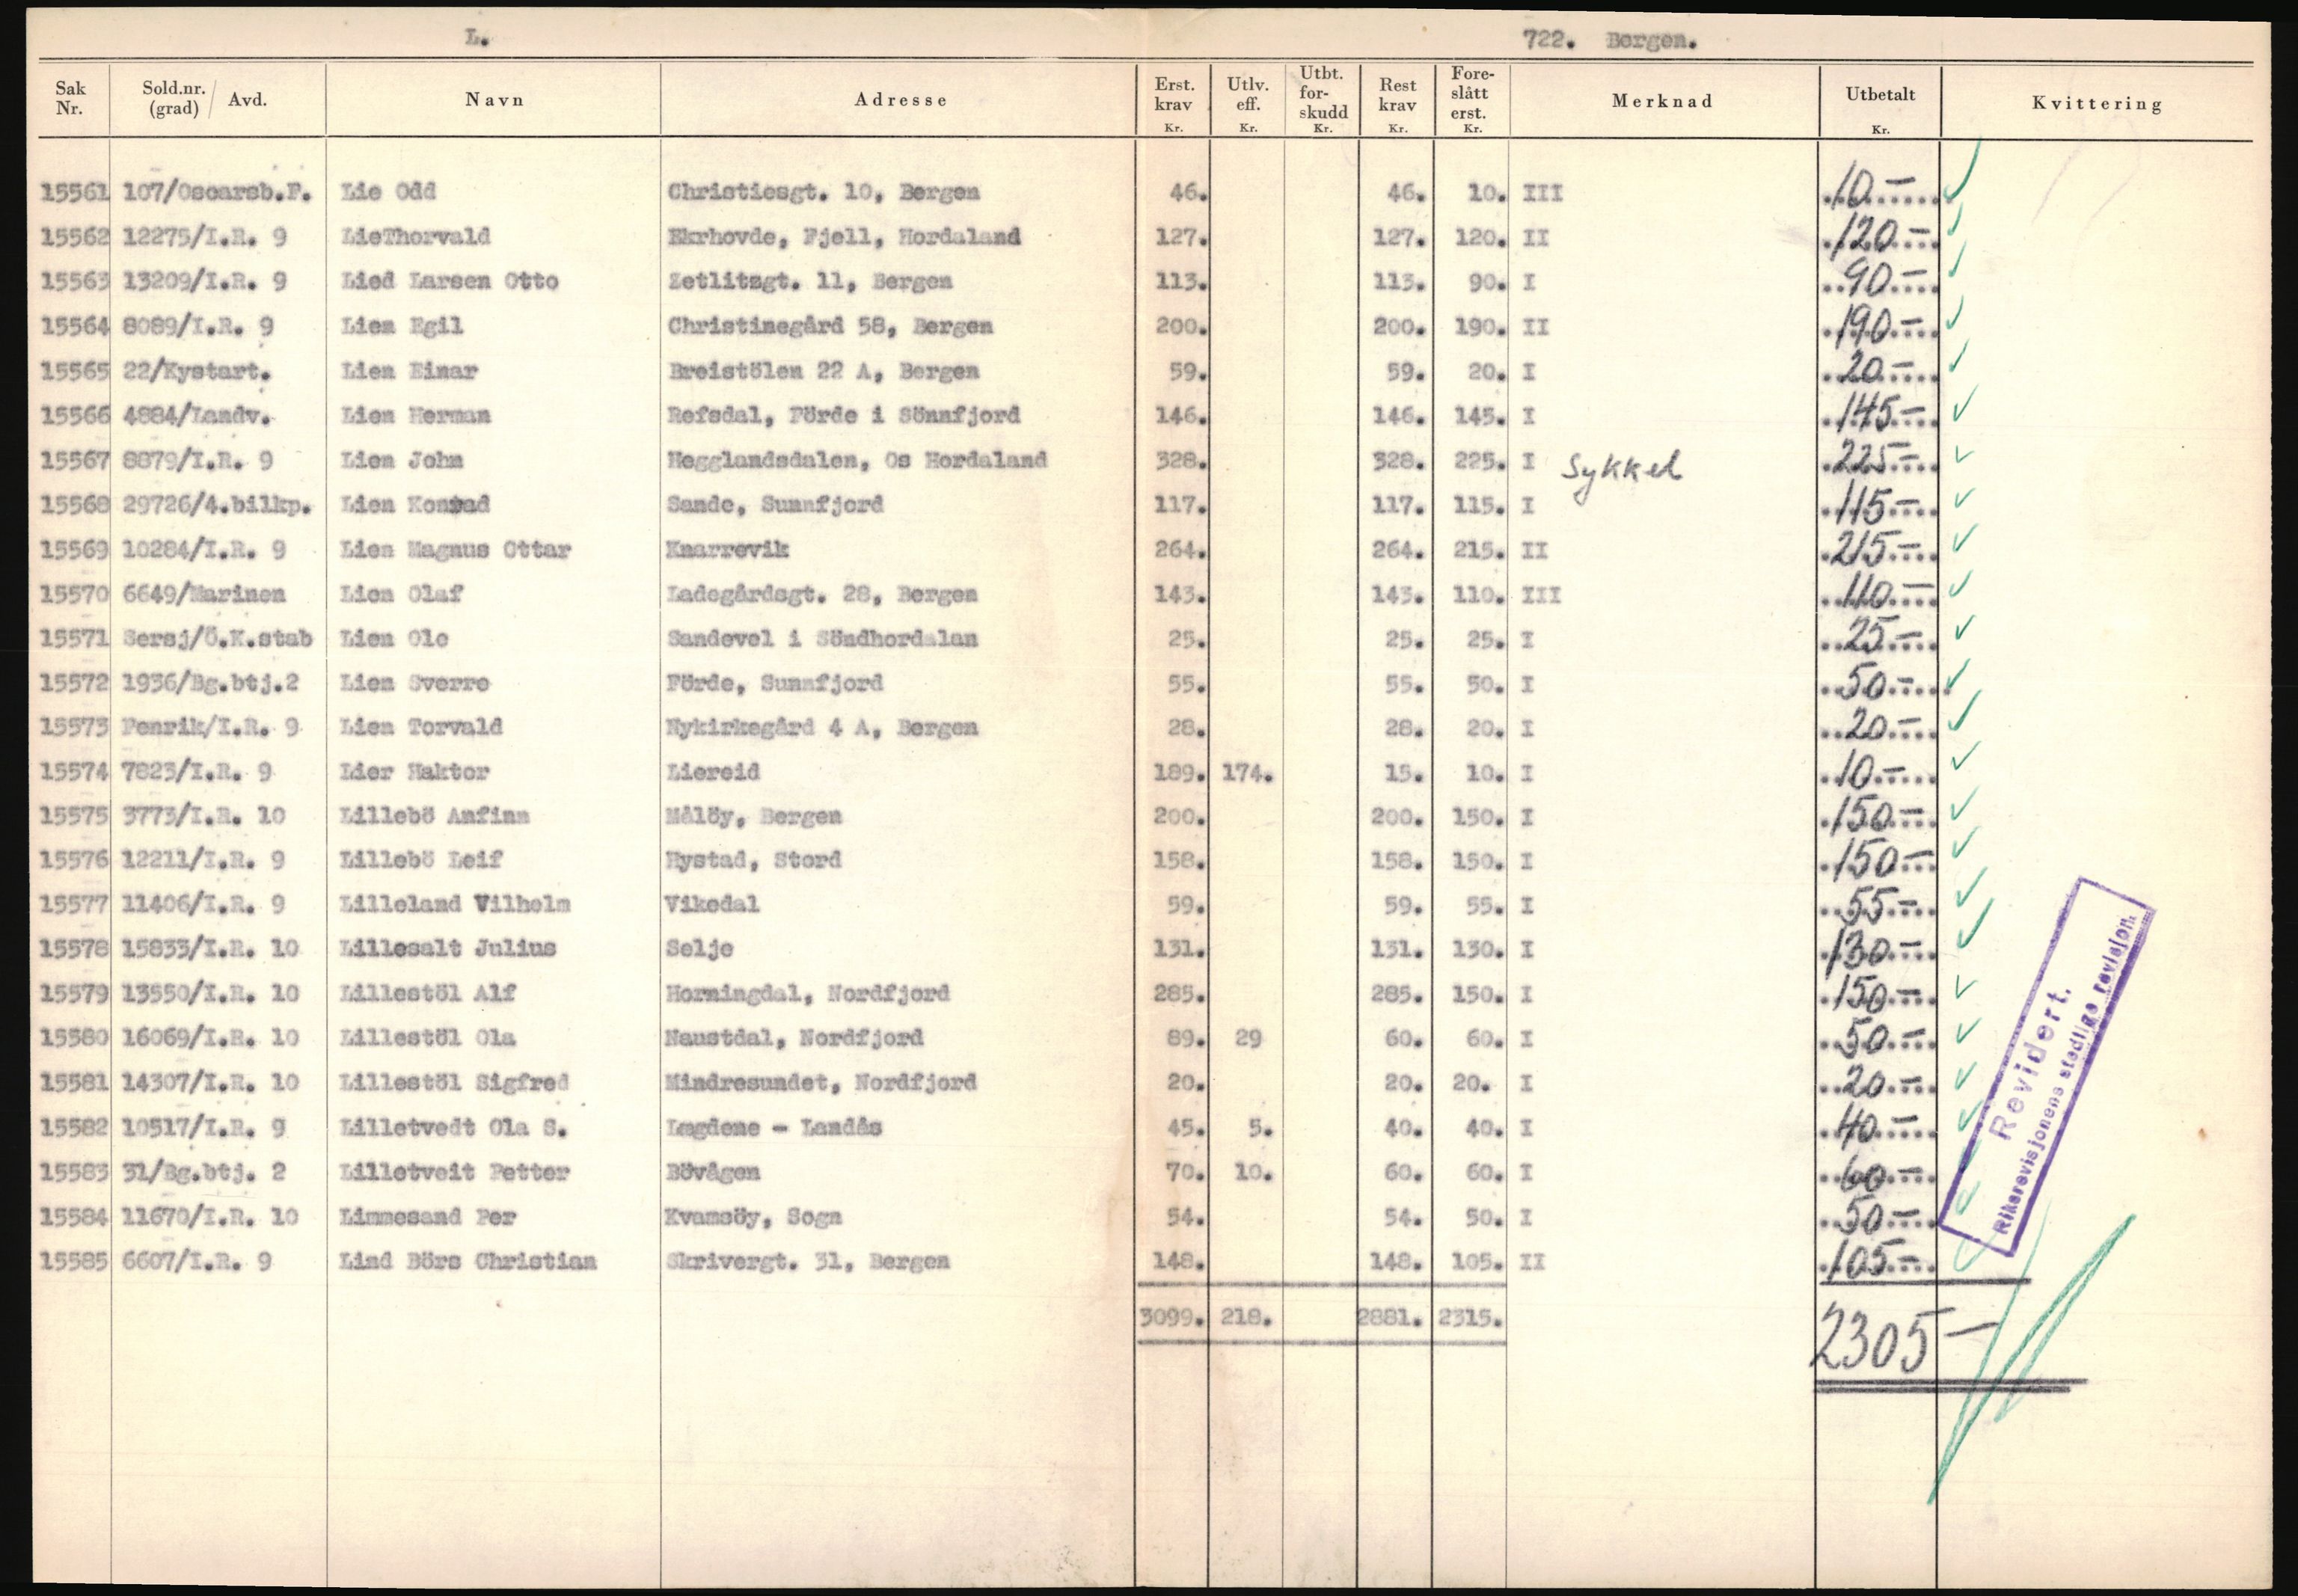 L. 722. Bergen.
Sak Nr. Sold.nr. (grad) / Avd. Navn Adresse Erst. krav Kr. Utlv. eff. Kr. Utbt. for- skudd Kr. Rest krav Kr. Fore- slått erst. Kr. Merknad Utbetalt Kr. Kvittering
15561 107/Oscarsb.F. Lie Odd Christiesgt. 10, Bergen 46. 46. 10. III 10.-
15562 12275/I.R. 9 LieThorvald Ekrhovde, Fjell, Hordaland 127. 127. 120. II 120.-
15563 13209/I.R. 9 Lied Larsen Otto Zetlitzgt. 11, Bergen 113. 113. 90. I 90.-
15564 8089/I.R. 9 Lien Egil Christinegård 58, Bergen 200. 200. 190. II 190.-
15565 22/Kystart. Lien Einar Breistölen 22 A, Bergen 59. 59. 20. I 20.-
15566 4884/Landv. Lien Herman Refsdal, Förde i Sönnfjord 146. 146. 145. I 145.-
15567 8879/I.R. 9 Lien John Hegglandsdalen, Os Hordaland 328. 328. 225. I Sykkel 225.-
15568 29726/4.bilkp. Lien Konrad Sande, Sunnfjord 117. 117. 115. I 115.-
15569 10284/I.R. 9 Lien Magnus Ottar Knarrevik 264. 264. 215. II 215.-
15570 6649/Marinen Lien Olaf Ladegårdsgt. 28, Bergen 143. 143. 110. III 110.-
15571 Sersj/Ö.K.stab Lien Ole Sandevel i Söndhordalan 25. 25. 25. I 25.-
15572 1936/Bg.btj.2 Lien Sverre Förde, Sunnfjord 55. 55. 50. I 50.-
15573 Fenrik/I.R. 9 Lien Torvald Nykirkegård 4 A, Bergen 28. 28. 20. I 20.-
15574 7823/I.R. 9 Lier Haktor Liereid 189. 174. 15. 10. I 10.-
15575 3773/I.R. 10 Lillebö Anfinn Målöy, Bergen 200. 200. 150. I 150.-
15576 12211/I.R. 9 Lillebö Leif Hystad, Stord 158. 158. 150. I 150.-
15577 11406/I.R. 9 Lilleland Vilhelm Vikedal 59. 59. 55. I 55.-
15578 15833/I.R. 10 Lillesalt Julius Selje 131. 131. 130. I 130.-
15579 13550/I.R. 10 Lillestöl Alf Horningdal, Nordfjord 285. 285. 150. I 150.-
15580 16069/I.R. 10 Lillestöl Ola Naustdal, Nordfjord 89. 29 60. 60. I 50.-
15581 14307/I.R. 10 Lillestöl Sigfred Hindresundet, Nordfjord 20. 20. 20. I 20.-
15582 10517/I.R. 9 Lilletvedt Ola S. Lægdene - Landås 45. 5. 40. 40. I 40.-
15583 31/Bg.btj. 2 Lilletveit Petter Bövågen 70. 10. 60. 60. I 60.-
15584 11670/I.R. 10 Limmesand Per Kvamsöy, Sogn 54. 54. 50. I 50.-
15585 6607/I.R. 9 Lind Börs Christian Skrivergt. 31, Bergen 148. 148. 105. II 105.-
3099. 218. 2881. 2315. 2305-
Revidert.
Riksrevisjonens stedlige revisjon.